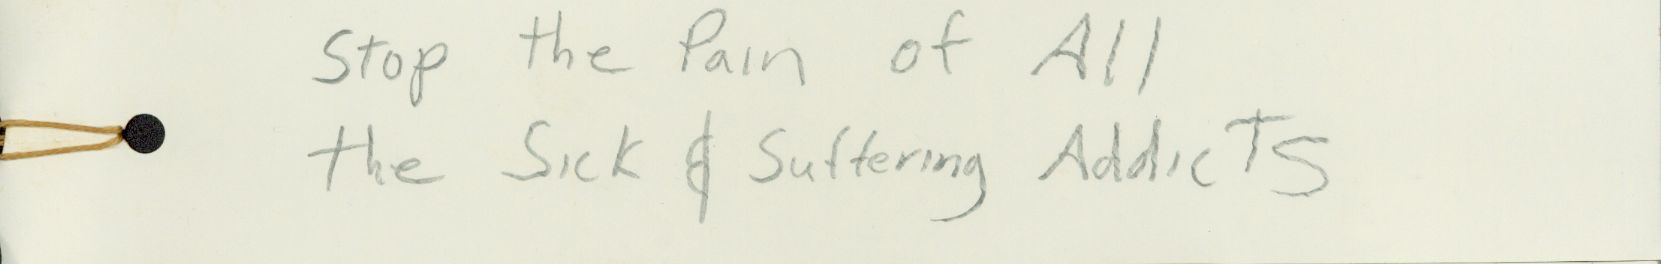 Stop the Pain of All
the Sick & Suffering Addicts